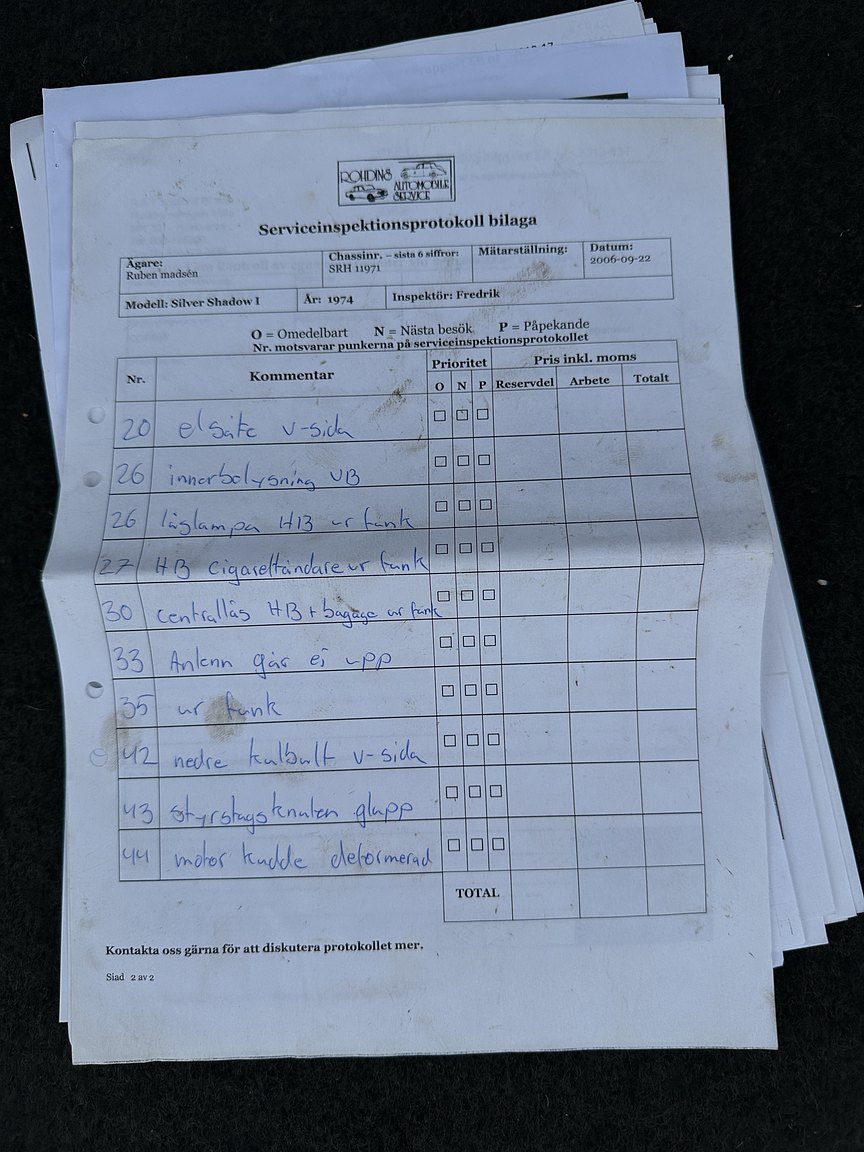 ROHDINS
AUTOMOBILE
SERVICE
Serviceinspektionsprotokoll bilaga
Ägare: Chassinr. – sista 6 siffror: Mätarställning: Datum:
Ruben madsén SRH 11971 2006-09-22
Modell: Silver Shadow I År: 1974 Inspektör: Fredrik
O = Omedelbart N = Nästa besök P = Påpekande
Nr. motsvarar punkerna på serviceinspektionsprotokollet
Nr. Kommentar Prioritet Pris inkl. moms
O N P Reservdel Arbete Totalt
20 elsäte v-sida
26 innerbolysning VB
26 låglampa HB ur funk
27 HB Cigarettändare ur funk
30 centrallås HB + bagage ur funk
33 Antenn går ej upp
35 ur funk
42 nedre kulbult v-sida
43 styrstagsknuten glapp
44 motor kudde deformerad
TOTAL
Kontakta oss gärna för att diskutera protokollet mer.
Siad 2 av 2